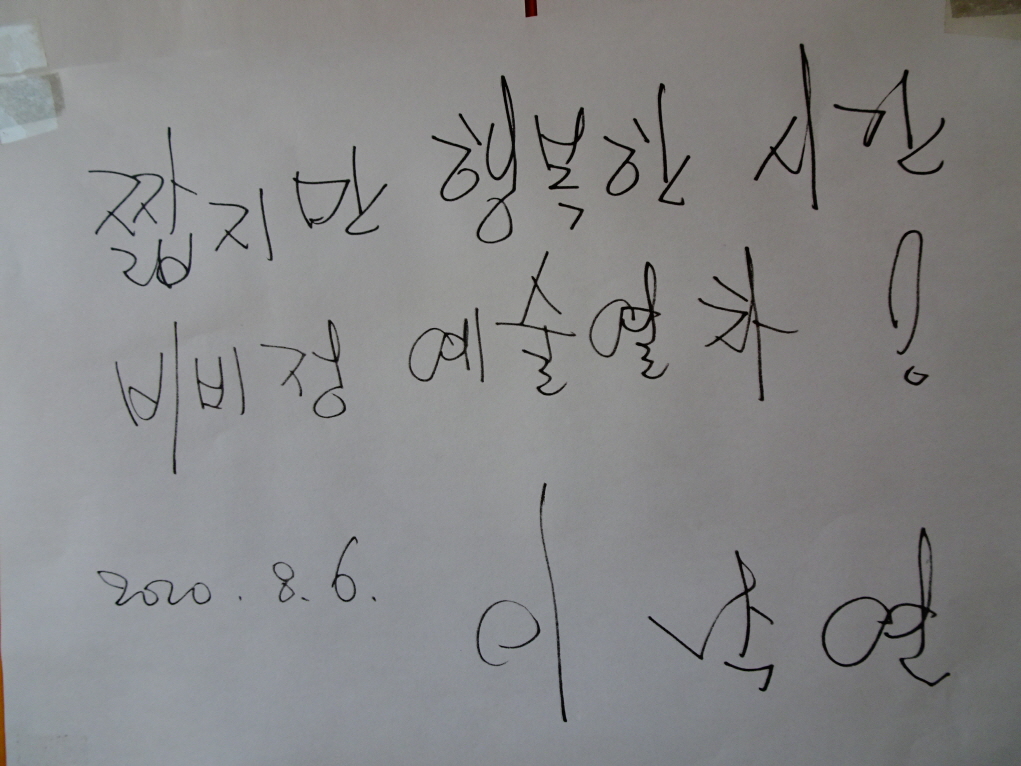 짧지만 행복한 시간
비비정 예술열차 !
2020. 8. 6. 이낙연